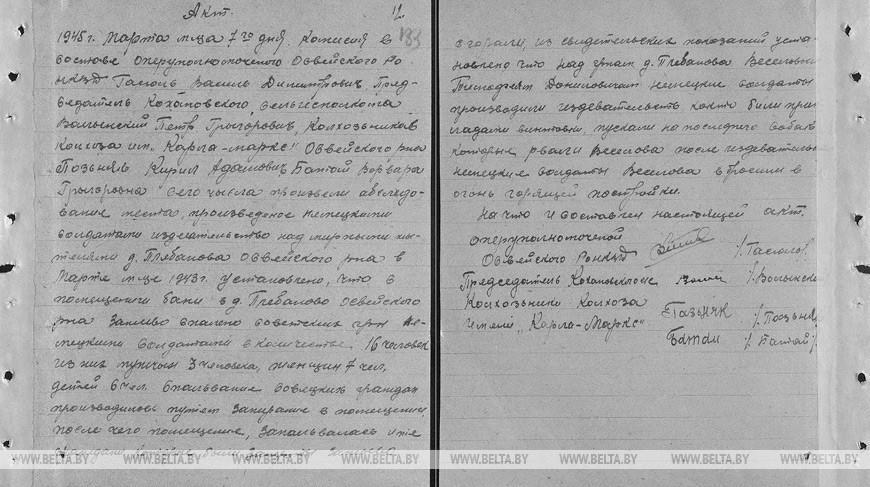 Акт.
12
183
1945 г. Марта м-ца 7го дня. Комисия в
составе Оперуполномоченого Освейского Ро
НКВД Гасюль Василь Димитрович Пред-
ведатель Кохановского сельисполкома
Валынский Петр Грыгоровіч, Колхозников
Колхоза им. Карла-Маркс" Освейского р-на
Позьняк Кирил Адамович Батай Ворвара
Грыгоровна сего числа произвели абследо-
вание места, произведеное Немецкими
солдатами издевательство над мирными жи-
телями д. Плебанова Освейского р-на в
Марте м-це 1943 г. установлено, что в
помещении бани в д. Плебаново Освейского
р-на Заживо спалено советских гр-н Не-
мецкими солдатами в количестве 16 человек
из них мужчын 3 человека, женщин 7 чел.
детей 6 чел. Спальвание совецких граждан
производилось путем Запирание в помещении,
после чего помещение, Запальвалась и те
граждане которые были
сгорали, из свидетельских показаний уста-
новлено что над гр-ном д. Плебанова Веселовым
Даниловичам немецкие солдаты
производили издевательсть както били при
кладами винтовки, пускали на последнего собак
которые рвали Веселова после издевательс
немецкие солдаты Веселова вбросили в
огонь горящей постройки.
На что и составлен настоящей акт.
Оперуполномоченой
Освейского РонКВД /Гасюль
Председатель /Волынски
Колхозники Колхоза
имени „Карла-Маркс" Пазьняк /Позьняк
Батай /Батай/
WWW.BELTA.BY WWW.BELTA.BY WWW.BELTA.BY WWW.BELTA.BY WWW.BELTA.BY WWW.BELTA.BY WWW.BELTA.BY